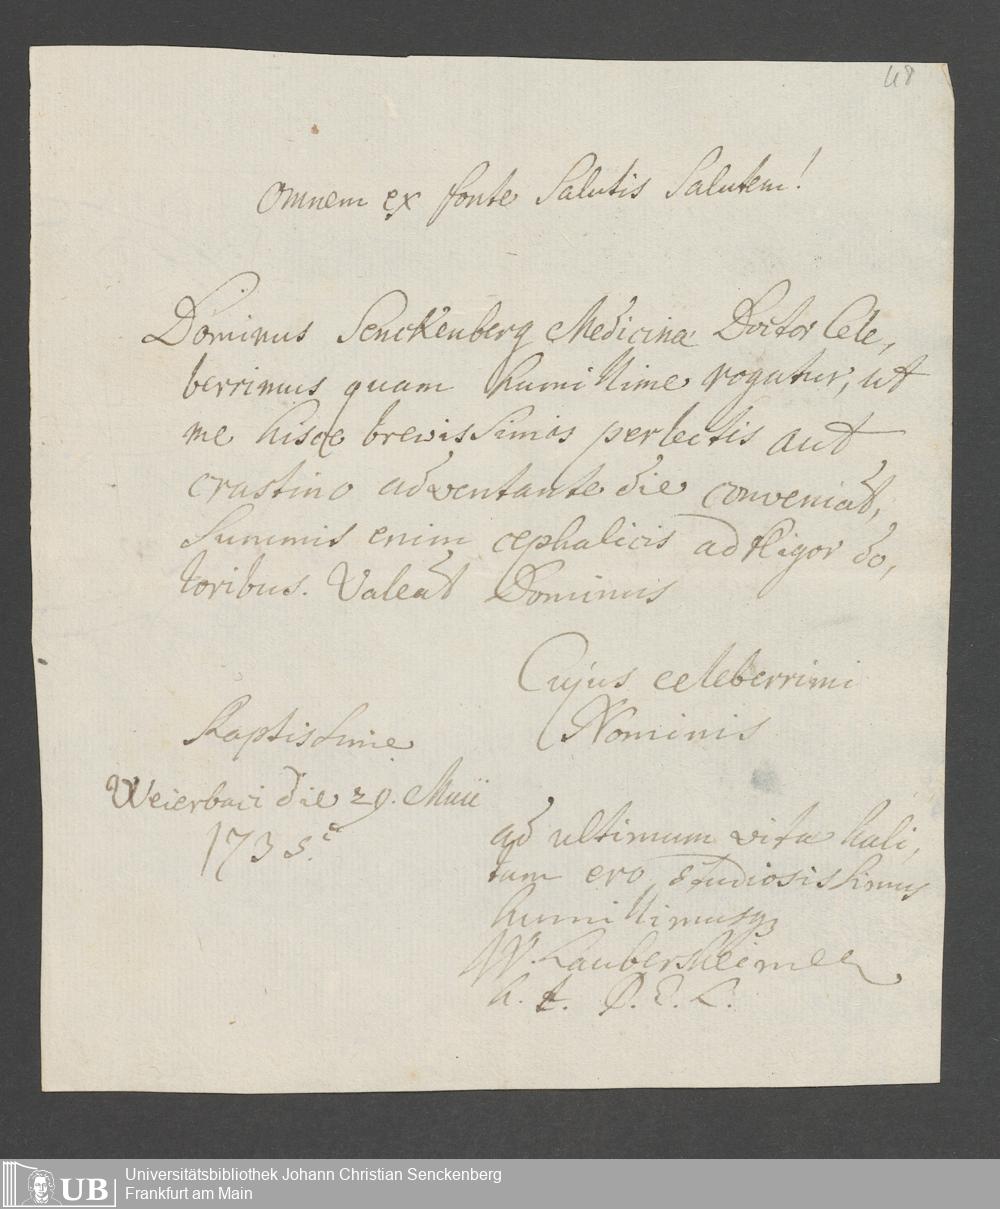 48
Omnem ex fonte Salutis Salutem!
Dominus Senckenberg Medicinæ Doctor Cele,
berrimus quam humillime rogatur, ut
me hisce brevissimis perlectis aut
crastino adventante die conveniat,
Summis enim cephalicis adfligor do,
loribus. Valeat Dominus
Cujus celeberrimi
Nominis
Raptissime
Weierbaci die 29. Maii
1735.
ad ultimum vitæ hali,
tum ero studiosissimus
humillimusq
W. Laubersheimer
h. t. P. E. L.
UB
Universitätsbibliothek Johann Christian Senckenberg
Frankfurt am Main